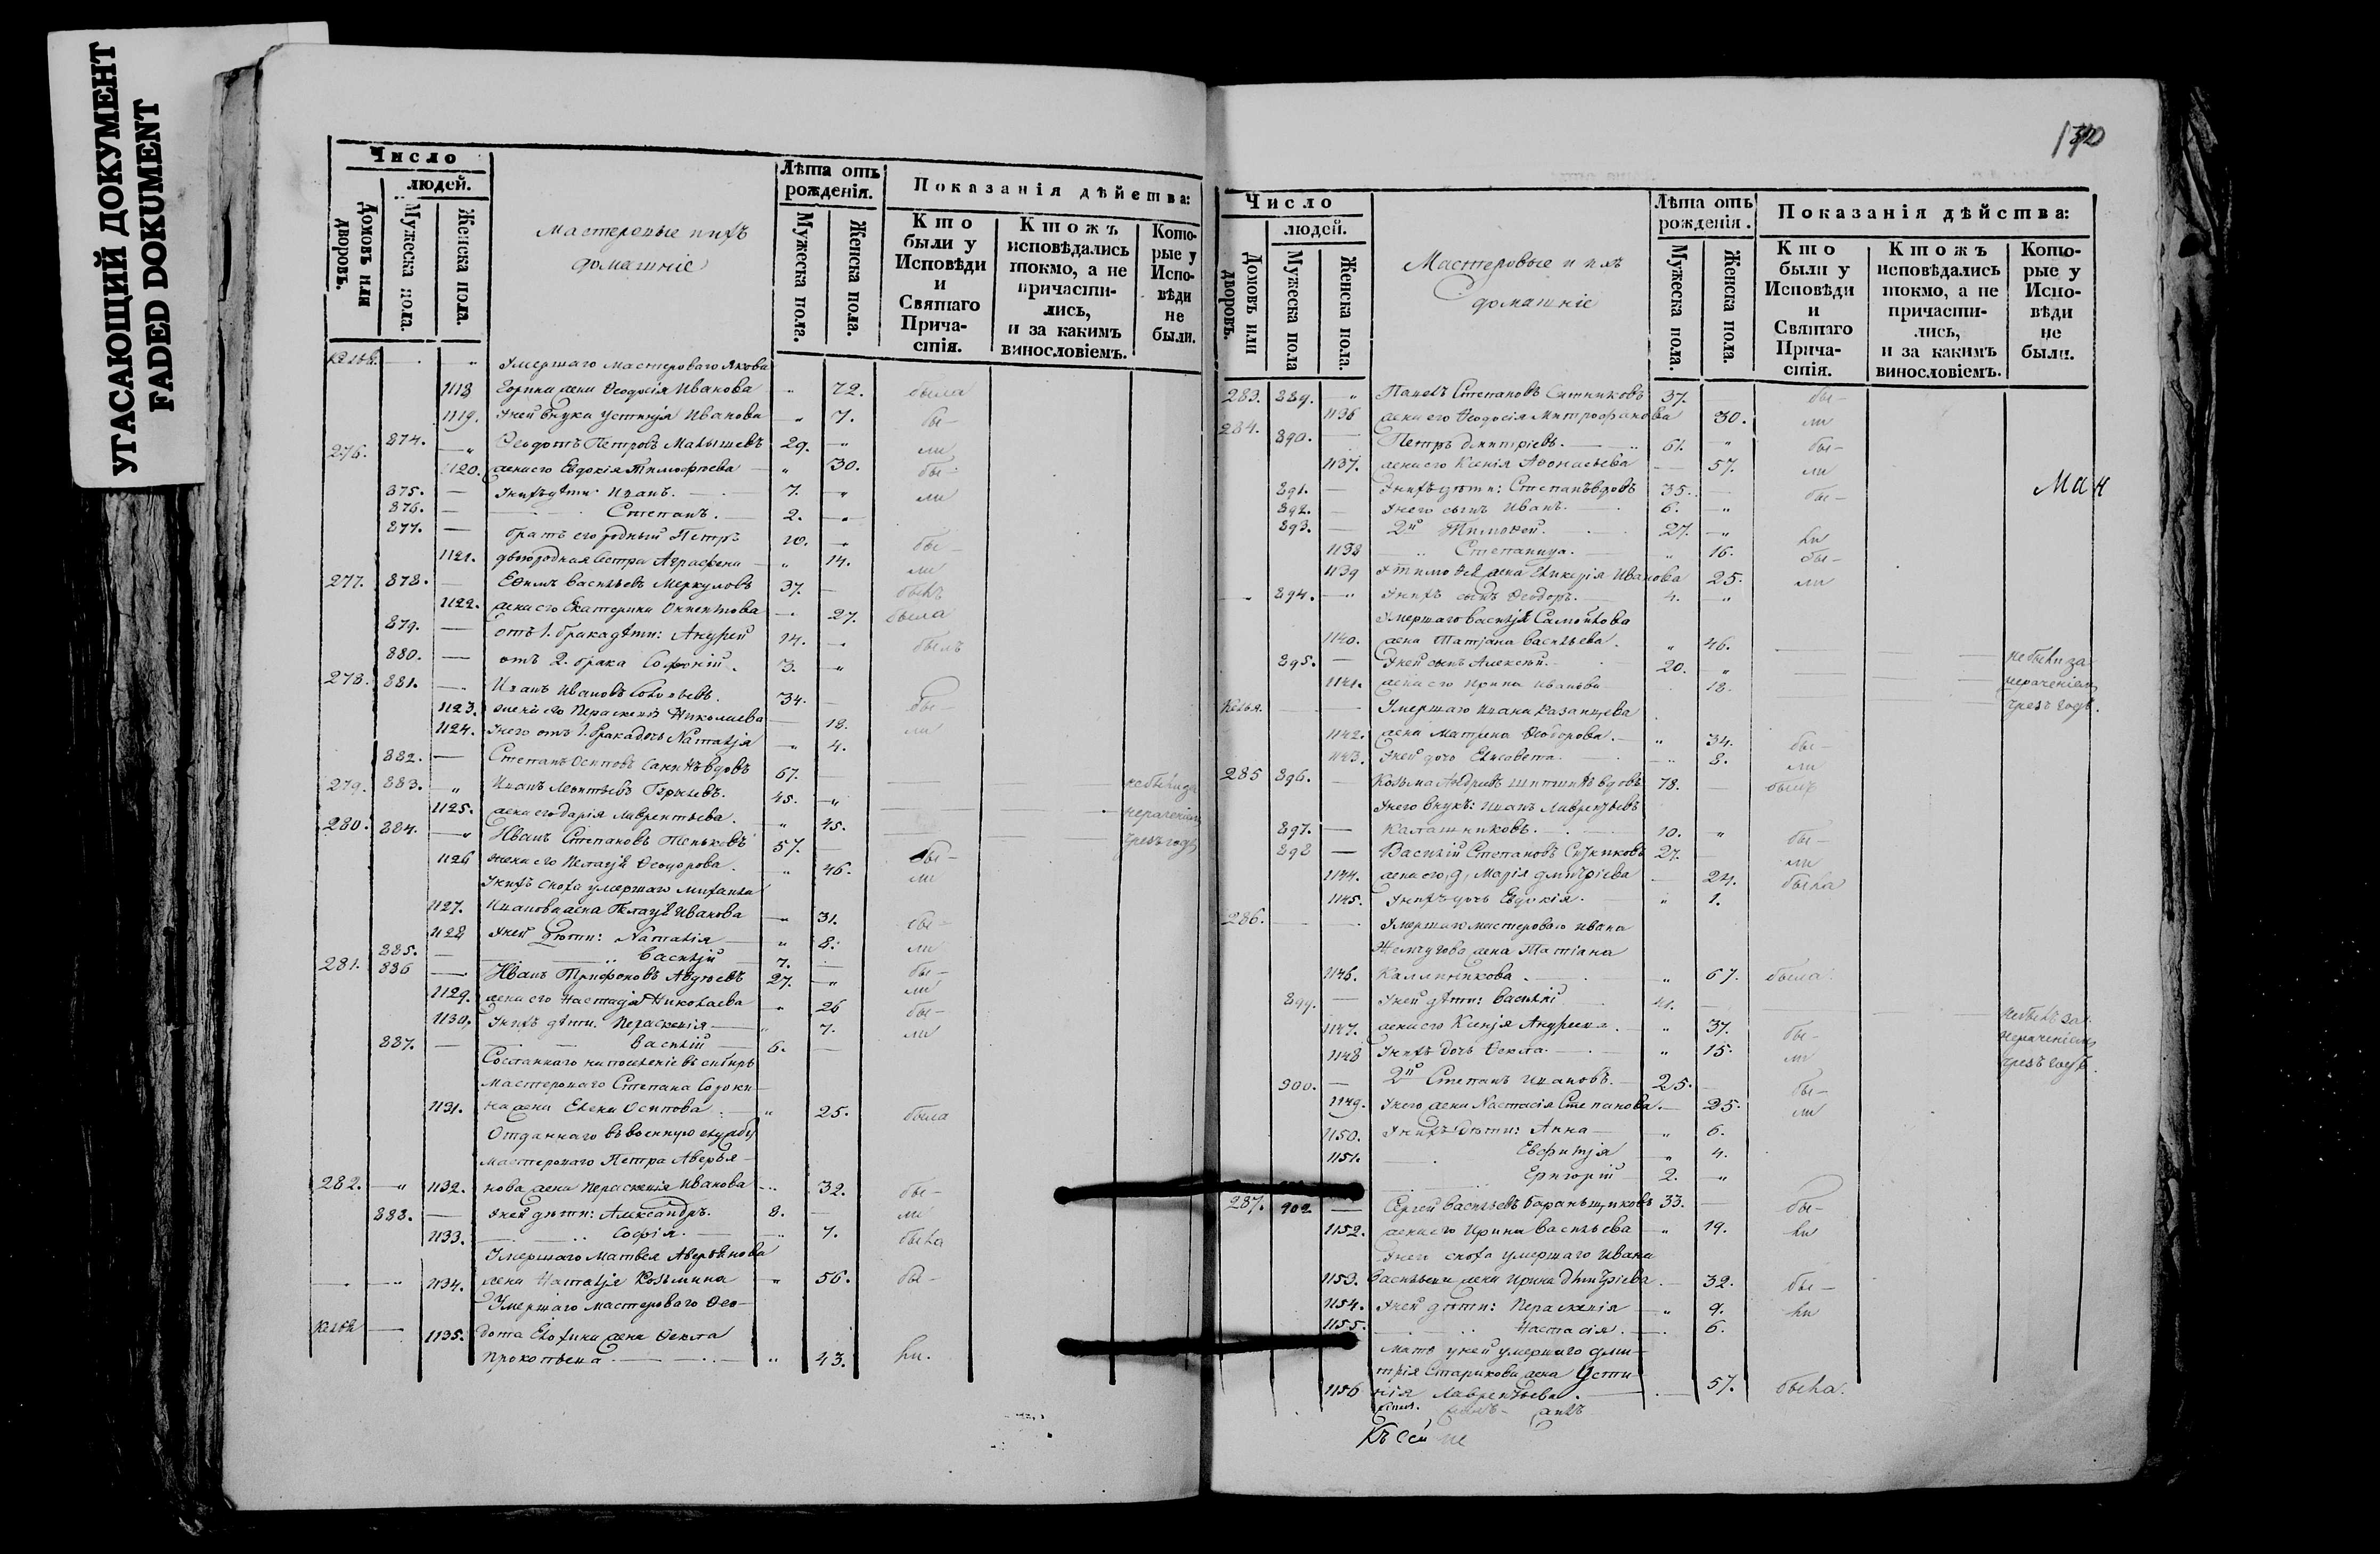 УГАСАЮЩИЙ ДОКУМЕНТ
FADED DOKUMENT
Число
людей.
Домовъ или дворовъ.
Мужеска пола.
Женска пола.
Мастеровые и ихъ
домашніе
Лѣта отъ рожденія.
Мужеска пола.
Женска пола.
Показанія дѣйства:
Кто были у Исповѣди и Святаго Прича-стія.
Ктожъ исповѣдались токмо, а не причасти-лись, и за какимъ винословіемъ.
Кото-рые у Испо-вѣди не были.
Умершаго мастероваго Якова
1118 жена Ѳеодосія Иванова 72. была
1119. У ней внука Устинія Иванова 7. бы-
276. 874. Ѳеодотъ Петровъ Малышевъ 29. ли
1120. жена его Евдокія Тимофѣева 30. бы-
875. У нихъ дѣти: Иванъ. 7. ли
876. Степанъ. 2.
877. братъ его родный Петръ 20. бы-
1121. двоюродная сестра Аграфена 14. ли
277. 878. Ефимъ Васильевъ Меркуловъ 37. былъ
1122. жена его Екатерина 27. была
879. отъ 1. брака дѣти: Андрей 14. былъ
880. отъ 2. брака Софроній. 3.
278. 881. Иванъ Ивановъ 34. бы-
1123. жена его Параскевія Николаева 18. ли
1124. У него отъ 1. брака дочь Наталія 4.
882. Степанъ Осиповъ вдовъ 67.
279. 883. Иванъ Леонтьевъ 45. не были за
1125. жена его Дарія Лаврентьева. 45. нераченіемъ
280. 884. Иванъ Степановъ Теньковъ 57. чрезъ годъ
1126 жена его Пелагія Ѳеодорова. 46. бы- ли
У нихъ сноха умершаго Михаила
1127. Иванова жена Пелагія Иванова 31. бы-
1128 У ней дѣти: Наталія 8. ли
885. Василій 7.
281. 886 Иванъ Трифоновъ Авдѣевъ 27. бы-
1129. жена его Настасія Николаева 26 ли
1130. У нихъ дѣти: Параскевія 7. бы-
887. Василій 6. ли
Сосланнаго на поселеніе въ сибирь
мастероваго Степана Сороки-
1131. на жена Елена Осипова. 25. была
Отданнаго въ военную службу
мастероваго Петра Аверья-
282. 1132. нова жена Параскевія Иванова 32. бы-
888. У ней дѣти: Александръ. 8. ли
1133. Софія. 7. была
Умершаго Матвея Аверьянова
1134. жена Наталія Козьмина 56. бы-
Умершаго мастероваго Ѳео-
1135. дота жена Ѳекла
Прокопьева 43. ли.
Число
людей.
Домовъ или дворовъ.
Мужеска пола
Женска пола.
Мастеровые и ихъ
домашніе
Лѣта отъ рожденія.
Мужеска пола.
Женска пола.
Показанія дѣйства:
Кто были у Исповѣди и Святаго Прича-стія.
Ктожъ исповѣдались токмо, а не причасти-лись, и за какимъ винословіемъ.
Кото-рые у Испо-вѣди не были.
283. 889. Павелъ Степановъ Ситниковъ 37. бы-
1136 жена его Ѳеодосія Митрофанова 30. ли
284. 890. Петръ Дмитріевъ. 61. бы-
1137. жена его Ксенія Аѳонасьева 57. ли
891. У нихъ дѣти: Степанъ вдовъ 35. бы-
892. У него сынъ Иванъ. 6.
893. 2й Тимоѳей. 27. ли
1138 Степанида. 16. бы-
1139 У Тимоѳея жена Гликерія Иванова 25. ли
894. У нихъ сынъ Ѳеодоръ. 4.
Умершаго Василія Самойлова
1140. жена Татіана Васильева. 46. не были за
895. У ней сынъ Алексѣй. 20. нераченіемъ
1141. жена его Ирина Иванова 18. чрезъ годъ.
Келья. Умершаго Ивана Казанцева
1142. жена Матрена Ѳеодорова. 34. бы-
1143. У ней дочь Елисавета. 8. ли
285 896. Козьма Андреевъ вдовъ 78. былъ
У него внукъ: Иванъ Лаврентьевъ
897. Калашниковъ. 10. бы-
898 Василій Степановъ 27. ли
1144. жена его, Марія Дмитріева 24. была
1145. У нихъ дочь Евдокія. 1.
286. Умершаго мастероваго Ивана
Жемчугова жена Татіана
1146. Каллиникова. 67. была
899. У ней дѣти: Василій 41. не былъ за
1147. жена его Ксенія Андреева. 37. бы- нераченіемъ
1148 У нихъ дочь Ѳекла. 15. ли чрезъ годъ.
900. 2й Степанъ Ивановъ. 25. бы-
1149. У него жена Настасія Степанова. 25. ли
1150. У нихъ дѣти: Анна 6.
1151. 4.
Григорій 2.
287. 902 Сергей Васильевъ Баранъщиковъ 33. бы-
1152. жена его Ирина Васильева 19. ли
У нихъ сноха умершаго Ивана
1153. Васильева жена Ирина Дмитріева. 32. бы-
1154. У ней дѣти: Параскевія 9. ли
1155. Настасія. 6.
Мать у ней умершаго Дми-
трія Старикова жена Усти-
1156 нія Лаврентьева. 57. была.
Къ сей